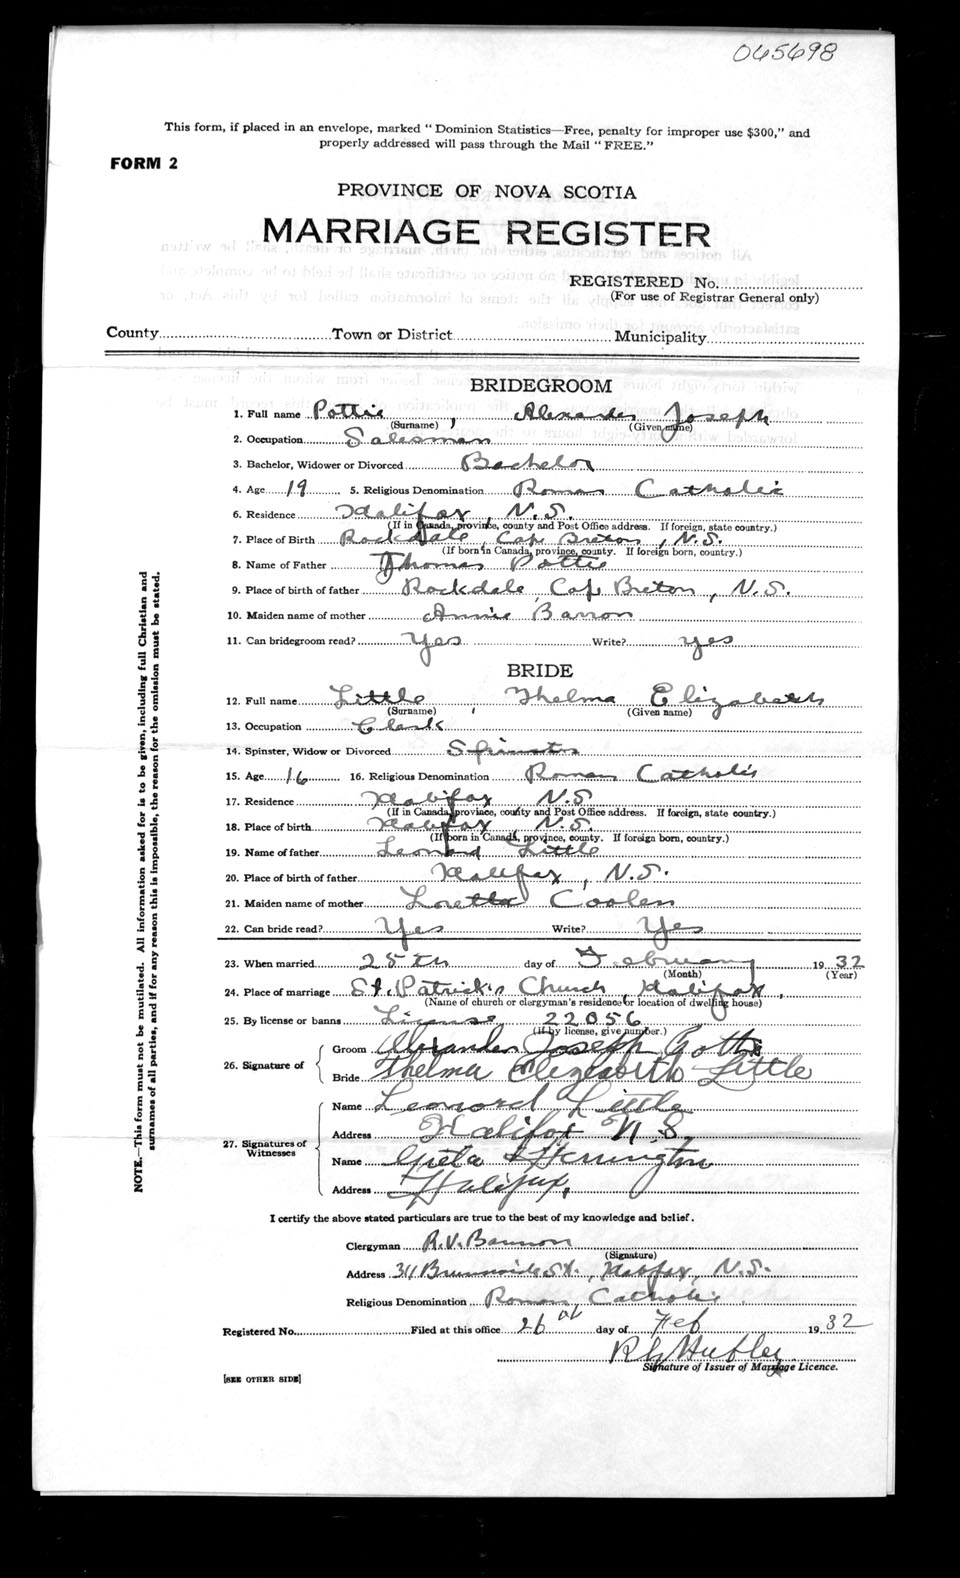 065698
This form, if placed in an envelope, marked "Dominion Statistics—Free, penalty for improper use $300," and
properly addressed will pass through the Mail "FREE."
FORM 2
PROVINCE OF NOVA SCOTIA
MARRIAGE REGISTER
REGISTERED No.
(For use of Registrar General only)
County Town or District Municipality
BRIDEGROOM
1. Full name Pottie, Alexander Joseph
(Surname) (Given name)
2. Occupation Salesman
3. Bachelor, Widower or Divorced Bachelor
4. Age 19 5. Religious Denomination Roman Catholic
6. Residence Halifax, N.S.
(If in Canada, province, county and Post Office address. If foreign, state country.)
7. Place of Birth Rockdale, Cape Breton, N.S.
(If born in Canada, province, county. If foreign born, country.)
8. Name of Father Thomas Pottie
9. Place of birth of father Rockdale, Cape Breton, N.S.
10. Maiden name of mother Annie Barron
11. Can bridegroom read? Yes Write? yes
BRIDE
12. Full name Little, Thelma Elizabeth
(Surname) (Given name)
13. Occupation Clerk
14. Spinster, Widow or Divorced Spinster
15. Age 16 16. Religious Denomination Roman Catholic
17. Residence Halifax N.S.
(If in Canada, province, county and Post Office address. If foreign, state country.)
18. Place of birth Halifax N.S.
(If born in Canada, province, county. If foreign born, country.)
19. Name of father Leonard Little
20. Place of birth of father Halifax, N.S.
21. Maiden name of mother Loretta Coolen
22. Can bride read? Yes Write? Yes
23. When married 25th day of February 1932
(Month) (Year)
24. Place of marriage St. Patrick's Church, Halifax,
(Name of church or clergyman's residence or location of dwelling house)
25. By license or banns License 22056
(If by license, give number.)
26. Signature of Groom Alexander Joseph Pottie
Bride Thelma Elizabeth Little
27. Signatures of Witnesses
Name Leonord Little
Address Halifax N.S.
Name Greta Herrington
Address Halifax,
I certify the above stated particulars are true to the best of my knowledge and belief.
Clergyman R.V. Bannon
(Signature)
Address 311 Brunswick St., Halifax, N.S.
Religious Denomination Roman Catholic
Registered No. Filed at this office 26th day of Feb 1932
Hubley
Signature of Issuer of Marriage Licence.
[SEE OTHER SIDE]
NOTE.—This form must not be mutilated. All information asked for is to be given, including full Christian and
surnames of all parties, and if for any reason this is impossible, the reason for the omission must be stated.